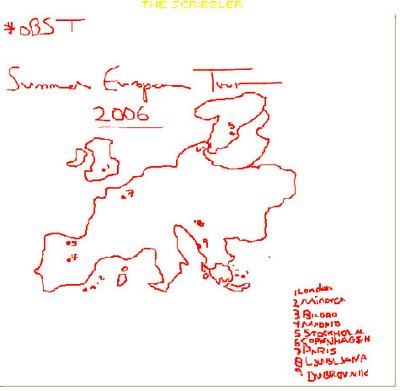 THE SCRIBBLER
*OBST
Summer European Tour
2006
5
6
1
7
3
4
8
9
2
1 London
2 Minorca
3 BILBAO
4 MADRID
5 STOCKHOLM
6 COPENHAGEN
7 PARIS
8 LJUBLJANA
9 DUBROVNIK